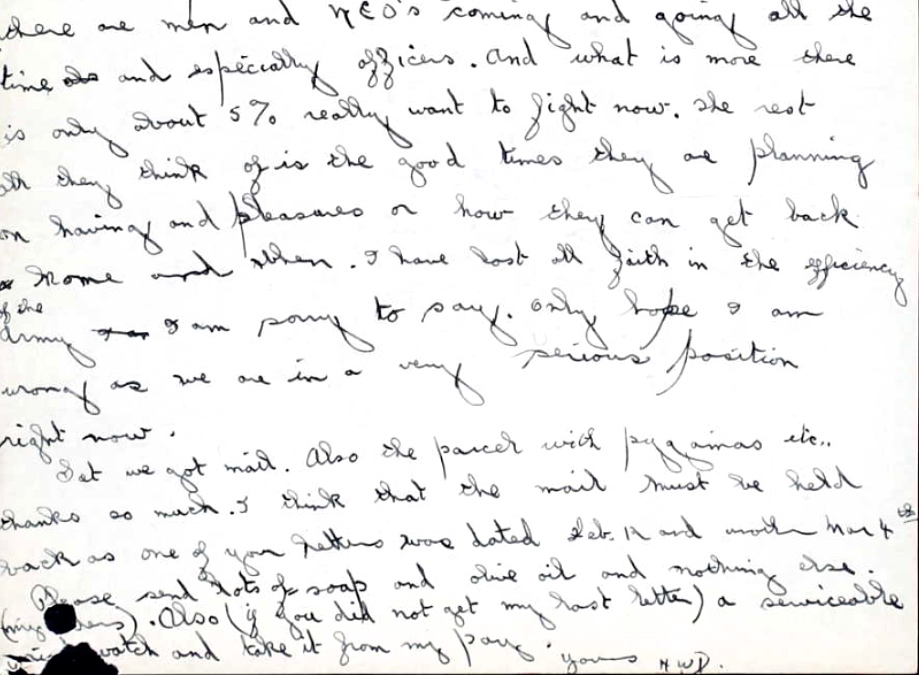 there are men and NCO's coming and going all the
time and especially officers. And what is more there
is only about 5% really want to fight now. The rest
all they think of is the good times they are planning
on having and pleasures or how they can get back
home and when. I have lost all faith in the efficiency
of the
Army I am sorry to say. Only hope I am
wrong as we are in a very serious position
right now.
Sat we got mail. Also the parcel with pygamas etc..
thanks so much. I think that the mail must be held
back as one of your letters was dated Feb. 12 and another Mar 4th
Please send lots of soap and olive oil and nothing else.
(my). Also (if you did not get my last letter) a serviceable
watch and take it from my pay.
yours HWD.